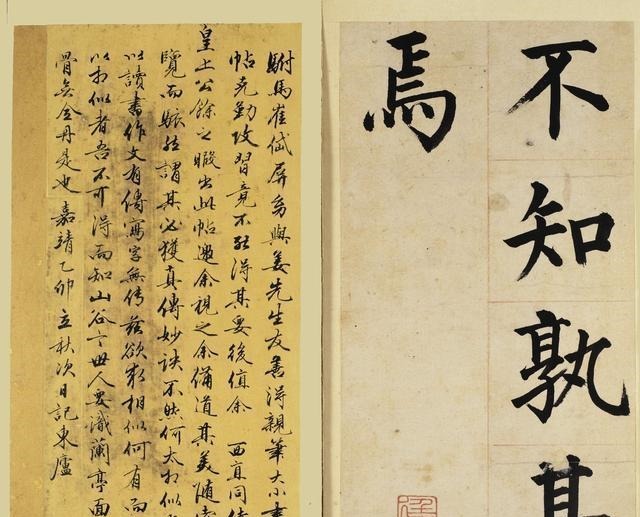 不知孰甚
焉
駙馬崔岱屏舜與姜先生友善得親筆大小書
帖克勤攻習竟不能得其要後值余西直同
皇上公餘之暇出此帖邀余視之余備道其美随
覽而駭然謂某必獲真傳妙訣不然何太相似
以讀書作文有傳寫字無傳茲欲求相似何有而
以相似者吾不可得而知山谷云世人要識蘭亭面
骨無金丹是也嘉靖乙卯立秋次日記東廬